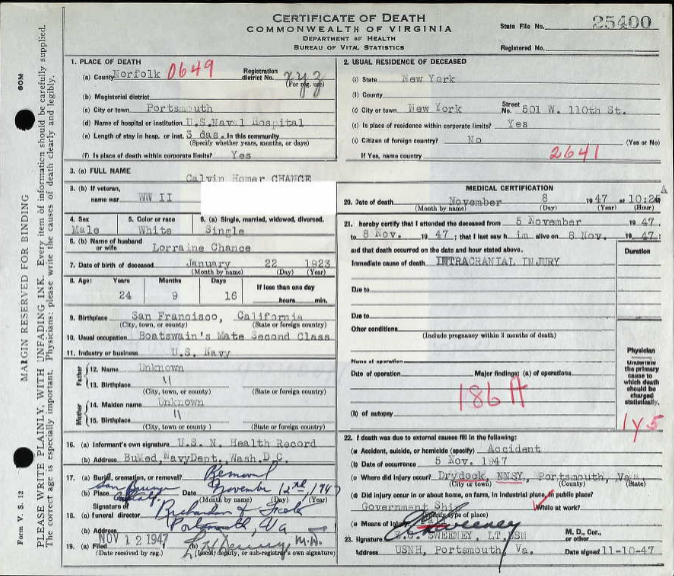 CERTIFICATE OF DEATH
COMMONWEALTH OF VIRGINIA
DEPARTMENT OF HEALTH
BUREAU OF VITAL STATISTICS
State File No. 25400
Registered No.
1. PLACE OF DEATH
(a) County Norfolk 0649 Registration district No.
(b) Magisterial district
(c) City or town Portsmouth
(d) Name of hospital or institution U.S. Naval Hospital
(e) Length of stay in hosp. or inst. 3 das. In this community
(Specify whether years, months, or days)
(f) Is place of death within corporate limits? Yes
2. USUAL RESIDENCE OF DECEASED
(a) State New York
(b) County
(c) City or town New York Street No. 501 W. 110th St.
(d) Is place of residence within corporate limits? Yes
(e) Citizen of foreign country? No (Yes or No)
If Yes, name country 2641
3. (a) FULL NAME Calvin Homer CHANCE
3. (b) If veteran, name war WW II
4. Sex Male
5. Color or race White
6. (a) Single, married, widowed, divorced. Single
6. (b) Name of husband or wife Lorraine Chance
7. Date of birth of deceased January 22 1923
(Month by name) (Day) (Year)
8. Age: Years 24 Months 9 Days 16 If less than one day hours min.
9. Birthplace San Francisco, California
(City, town, or county) (State or foreign country)
10. Usual occupation Boatswain's Mate Second Class
11. Industry or business U.S. Navy
Father
12. Name Unknown
13. Birthplace "
(City, town, or county) (State or foreign country)
Mother
14. Maiden name Unknown
15. Birthplace "
(City, town, or county) (State or foreign country)
16. (a) Informant's own signature U.S. N. Health Record
(b) Address BuMed, NavyDept., Wash. D.C.
17. (a) Burial, cremation, or removal? Removal
(b) Place San Bruno Calif. Date November 12th 1947
(Month by name) (Day) (Year)
18. (a) Signature of funeral director
(b) Address Portsmouth, Va
19. (a) Filed NOV 12 1947 (b) M.D.
(Date received by reg.) (Local, deputy, or sub-registrar's own signature)
MEDICAL CERTIFICATION
20. Date of Death November 8 1947 at 10:26 A
(Month by name) (Day) (Year) (Hour)
21. I hereby certify that I attended the deceased from 5 November 1947,
to 8 Nov. 1947; that I last saw him alive on 8 Nov. 1947;
and that death occurred on the date and hour stated above.
Duration
Immediate cause of death INTRACRANIAL INJURY
Due to
Due to
Other conditions
(Include pregnancy within 3 months of death)
Name of operation
Date of operation Major findings: (a) of operations
186 A
(b) of autopsy
Physician
Underline the primary cause to which death should be charged statistically.
195
22. If death was due to external causes fill in the following:
(a) Accident, suicide, or homicide (specify) Accident
(b) Date of occurrence 5 Nov. 1947
(c) Where did injury occur? Drydock NNSY, Portsmouth, Va.
(City or town) (County) (State)
(d) Did injury occur in or about home, on farm, in industrial place, in public place?
Government Ship While at work?
(Specify type of place)
(e) Means of injury
23. Signature SWEENEY, LT.
M. D., Cor., or other
Address USNH, Portsmouth, Va. Date signed 11-10-47
Form V. S. 12
60M
MARGIN RESERVED FOR BINDING
PLEASE WRITE PLAINLY, WITH UNFADING INK. Every item of information should be carefully supplied.
The correct age is especially important. Physicians: please write the causes of death clearly and legibly.